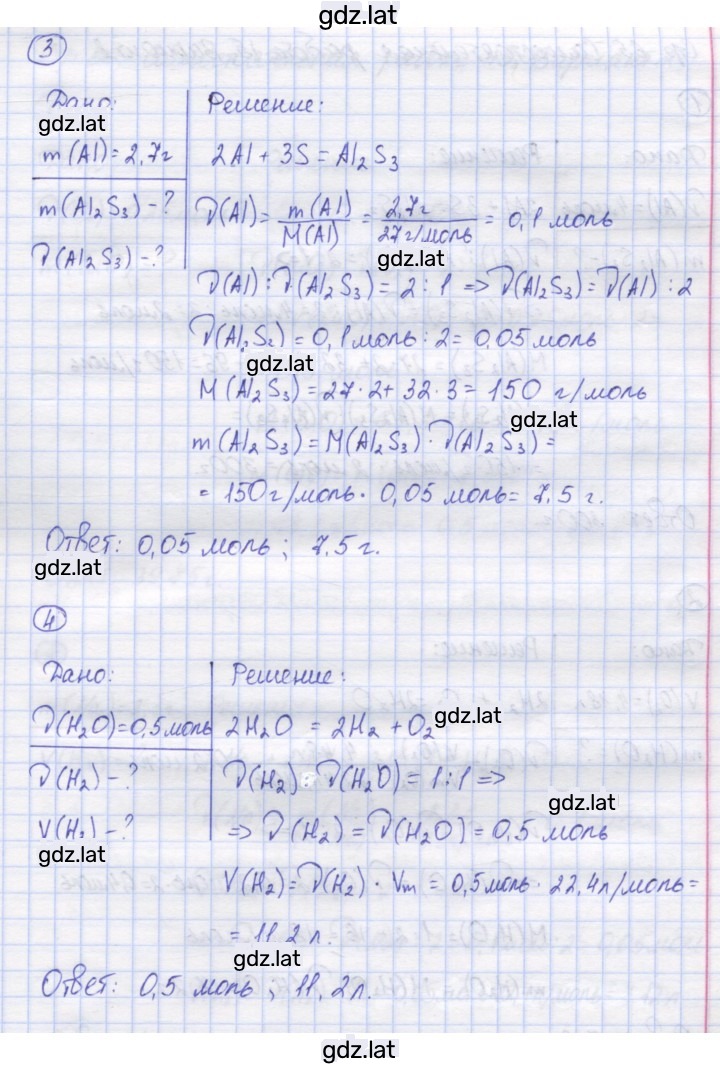 gdz.lat
3
Дано:
gdz.lat
m(Al)=2,7г
m(Al₂S₃)-?
ν(Al₂S₃)-?
Решение:
2Al+3S=Al₂S₃
ν(Al)= m(Al)/M(Al) = 2,7г/27г/моль = 0,1 моль
gdz.lat
ν(Al):ν(Al₂S₃)=2:1 => ν(Al₂S₃)=ν(Al):2
ν(Al₂S₃)=0,1моль:2=0,05 моль
gdz.lat
M(Al₂S₃)=27·2+32·3=150 г/моль
gdz.lat
m(Al₂S₃)=M(Al₂S₃)·ν(Al₂S₃)=
=150г/моль·0,05 моль=7,5 г.
Ответ: 0,05 моль; 7,5г.
gdz.lat
4
Дано:
ν(H₂O)=0,5моль
ν(H₂)-?
V(H₂)-?
gdz.lat
Решение:
2H₂O = 2H₂+O₂
gdz.lat
ν(H₂):ν(H₂O)=1:1 =>
gdz.lat
=> ν(H₂)=ν(H₂O)=0,5 моль
V(H₂)=ν(H₂)·Vm=0,5моль·22,4л/моль=
=11,2л.
gdz.lat
Ответ: 0,5 моль; 11,2л.
gdz.lat